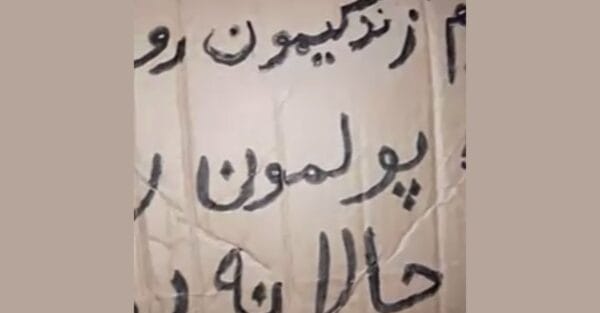 م زندگیمون رو
پولمون ر
حالا نه د